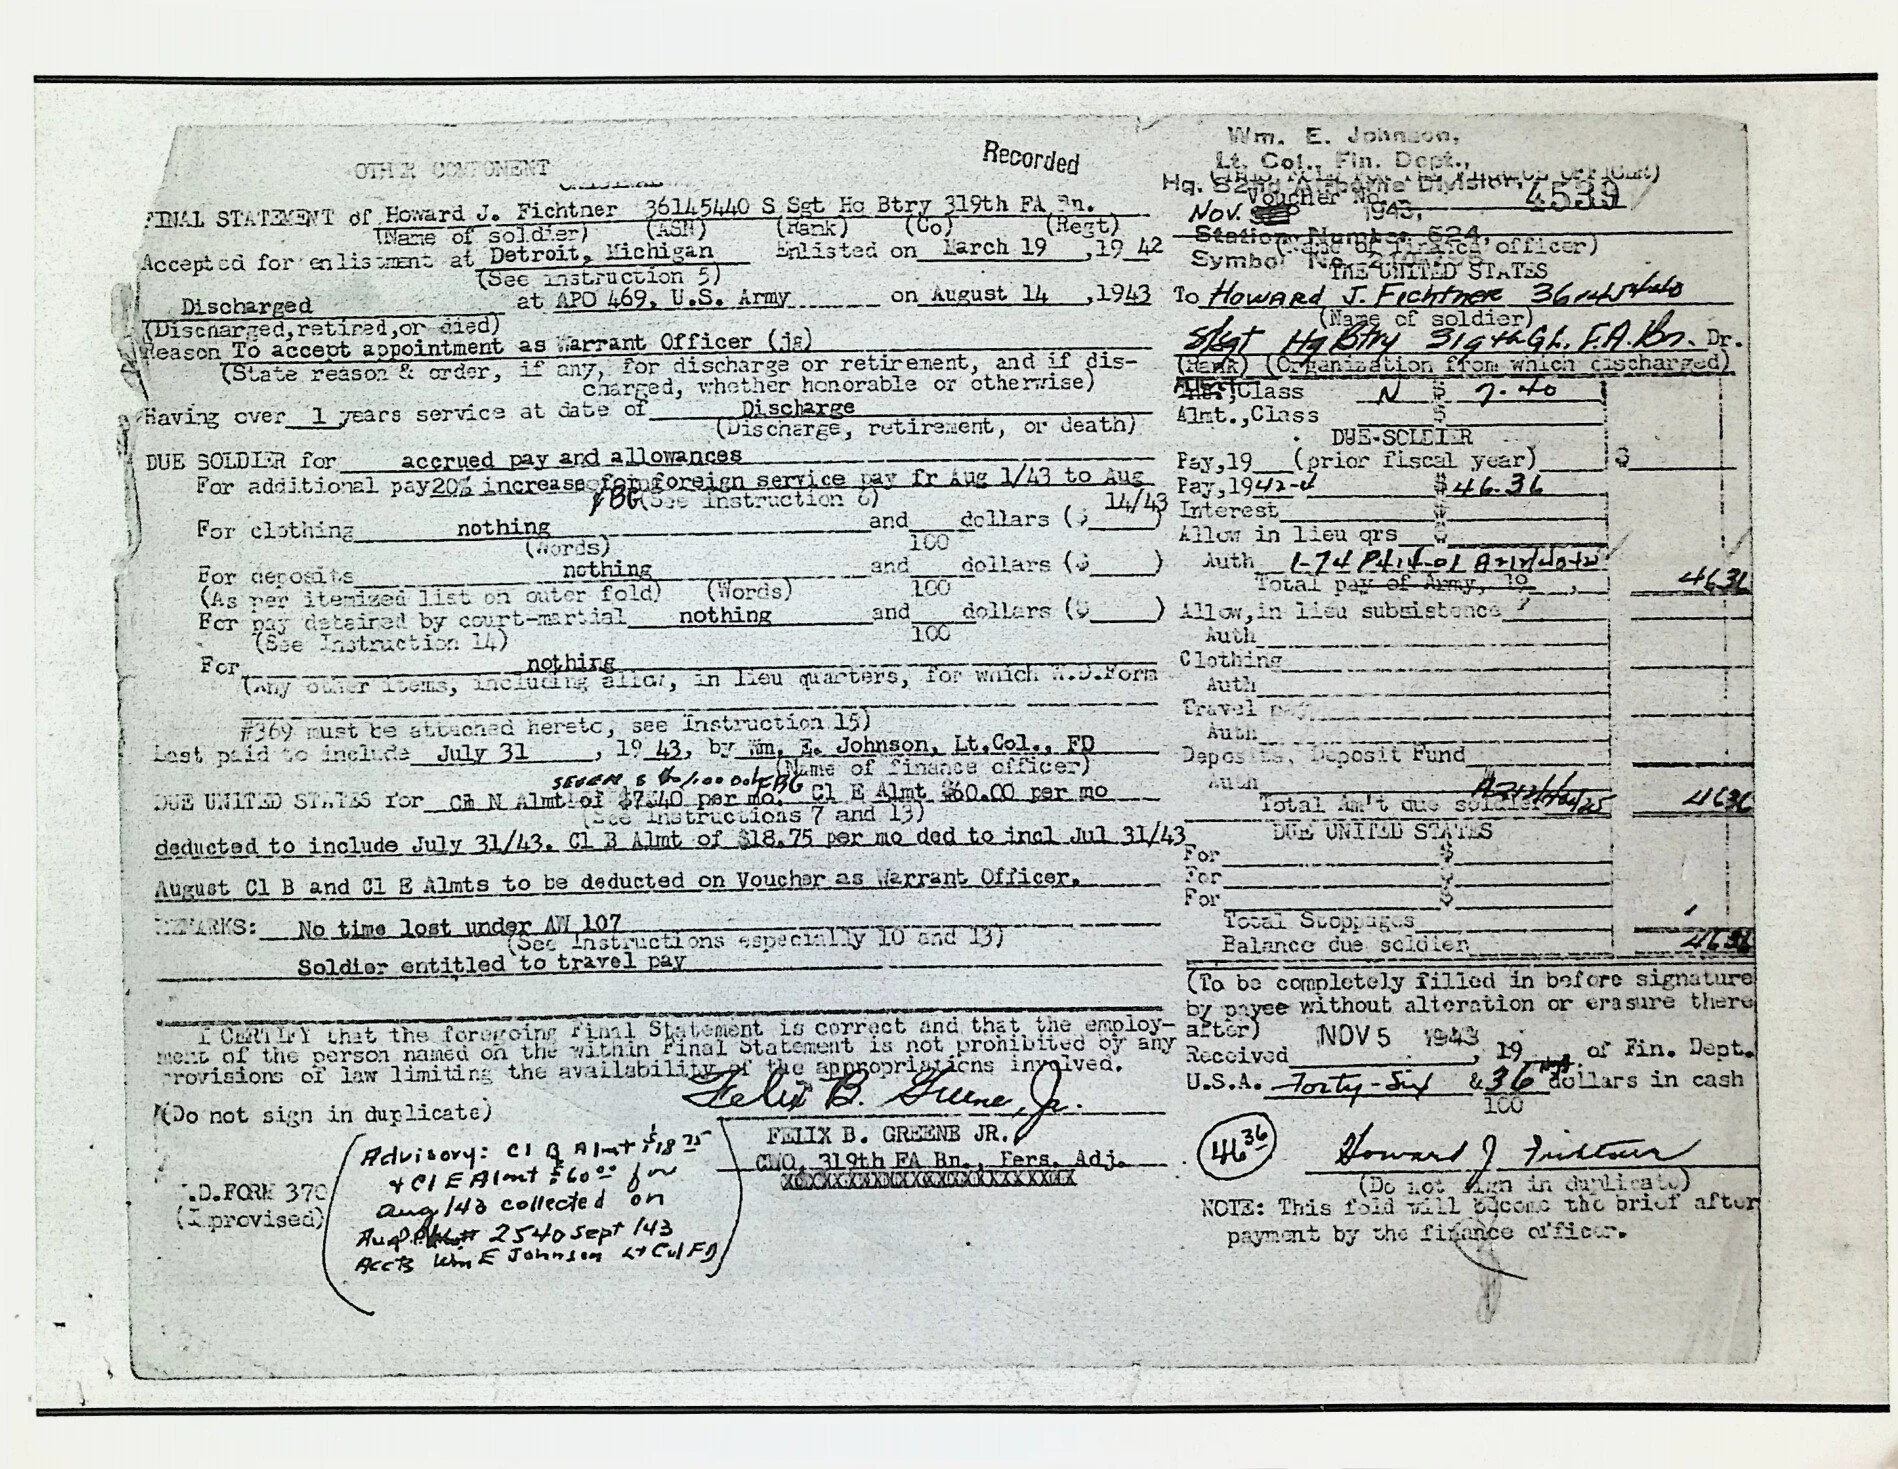 OTHER COMPONENT
Recorded
FINAL STATEMENT of Howard J. Fichtner 36145440 S Sgt Hq Btry 319th FA Bn.
(Name of soldier) (ASN) (Rank) (Co) (Regt)
Accepted for enlistment at Detroit, Michigan Enlisted on March 19 ,19 42
(See instruction 5)
Discharged at APO 469, U.S. Army on August 14 ,1943
(Discharged,retired,or died)
Reason To accept appointment as Warrant Officer (jg)
(State reason & order, if any, for discharge or retirement, and if dis-
charged, whether honorable or otherwise)
Having over 1 years service at date of Discharge
(Discharge, retirement, or death)
DUE SOLDIER for accrued pay and allowances
For additional pay 20% increase foreign service pay fr Aug 1/43 to Aug
14/43
(See Instruction 6)
For clothing nothing and dollars ($ )
(Words) 100
For deposits nothing and dollars ($ )
(As per itemized list on outer fold) (Words) 100
For pay detained by court-martial nothing and dollars ($ )
(See Instruction 14) 100
For nothing
(Any other items, including allow, in lieu quarters, for which W.D.Form
#369 must be attached hereto, see Instruction 15)
Last paid to include July 31 , 19 43, by Wm. E. Johnson, Lt.Col., FD
(Name of finance officer)
DUE UNITED STATES for Cl N Almt of $7.40 per mo. Cl E Almt $60.00 per mo
(See Instructions 7 and 13)
deducted to include July 31/43. Cl B Almt of $18.75 per mo ded to incl Jul 31/43
August Cl B and Cl E Almts to be deducted on Voucher as Warrant Officer.
REMARKS: No time lost under AW 107
(See Instructions especially 10 and 13)
Soldier entitled to travel pay
I CERTIFY that the foregoing Final Statement is correct and that the employ-
ment of the person named on the within Final Statement is not prohibited by any
provisions of law limiting the availability of the appropriations involved.
Felix B. Greene, Jr.
(Do not sign in duplicate)
FELIX B. GREENE JR.,
CWO, 319th FA Bn., Pers. Adj.
Advisory: Cl B Almt $18 75
+ Cl E Almt $60 00 for
Aug/43 collected on
Aug 2540 Sept /43
Accts Wm E Johnson Lt Col FD
W.D.FORM 370
(Improvised)
Wm. E. Johnson,
Lt. Col., Fin. Dept.,
Hq. 82nd Airborne Division,
Voucher No. 4539
Nov. 1943,
Station Number 624,
(Name of finance officer)
Symbol No.
THE UNITED STATES
To Howard J. Fichtner 36145440
(Name of soldier)
S/Sgt Hq Btry 319th Gl. F.A. Bn. Dr.
(Rank) (Organization from which discharged)
Class N $ 7.40
Almt.,Class $
DUE-SOLDIER
Pay,19 (prior fiscal year) $
Pay,1942-4 $46.36
Interest $
Allow in lieu qrs $
Auth
Total pay of Army, 19 , 4636
Allow,in lieu subsistence
Auth
Clothing
Auth
Travel pay
Auth
Deposits, Deposit Fund
Auth
Total Am't due soldier 4636
DUE UNITED STATES
For $
For $
For $
Total Stoppages
Balance due soldier 4636
(To be completely filled in before signature
by payee without alteration or erasure there
after)
NOV 5 1943
Received , 19 of Fin. Dept.
U.S.A. Forty-Six & 36 dollars in cash
100
46 36
Howard J Fichtner
(Do not sign in duplicate)
NOTE: This fold will become the brief after
payment by the finance officer.